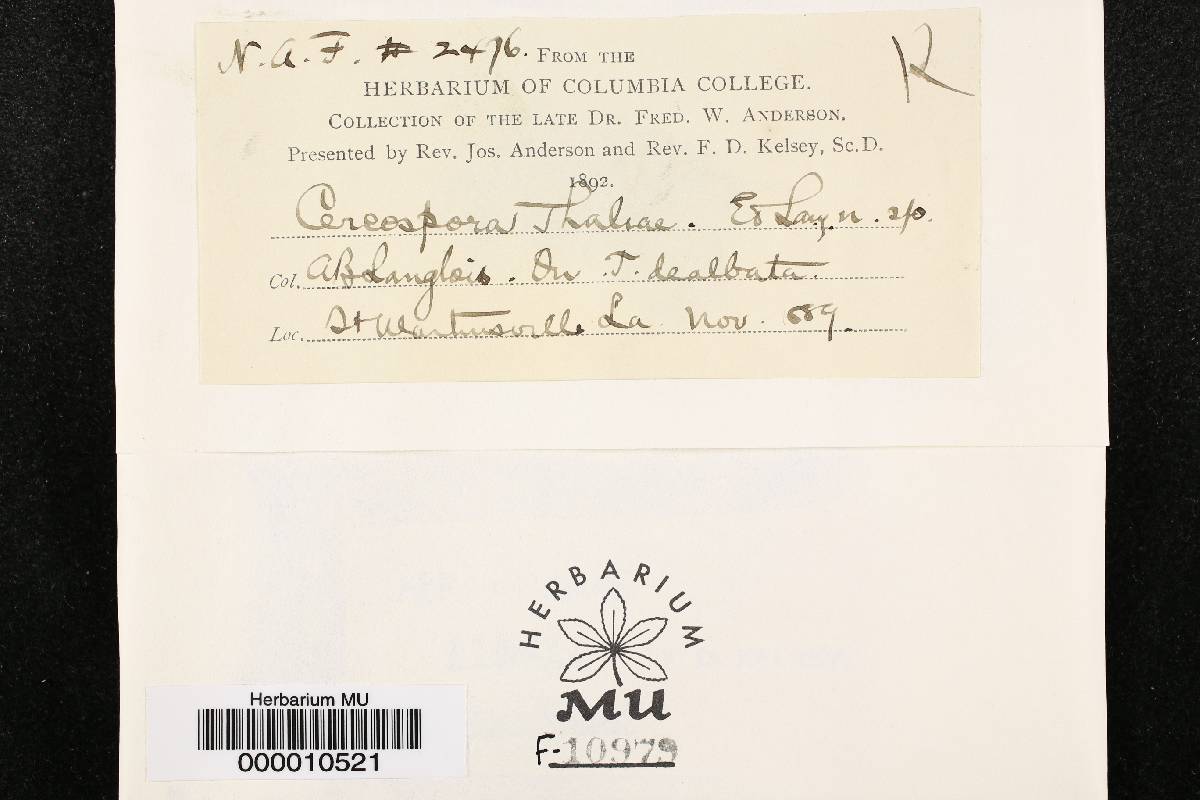 N. A. F. # 2496. FROM THE R
HERBARIUM OF COLUMBIA COLLEGE.
COLLECTION OF THE LATE DR. FRED. W. ANDERSON.
Presented by Rev. Jos. Anderson and Rev. F. D. Kelsey, Sc.D.
1892.
Cercospora Thaliae. E & Lang n. sp.
Col. AB Langlois. On T. dealbata.
Loc. St Martinsville La Nov. 889.
HERBARIUM
MU
F-10979
Herbarium MU
000010521